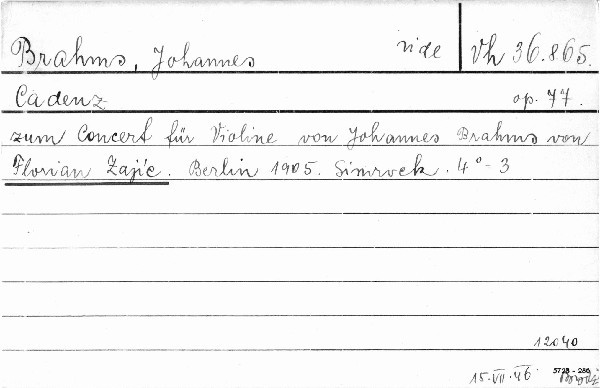 Brahms, Johannes vide Vh 36.865.
Cadenz op. 77.
zum Concert für Violine von Johannes Brahms von
Florian Zajíc. Berlin 1905. Simrock. 4° - 3
12040
5728 - 286
15.VII.46